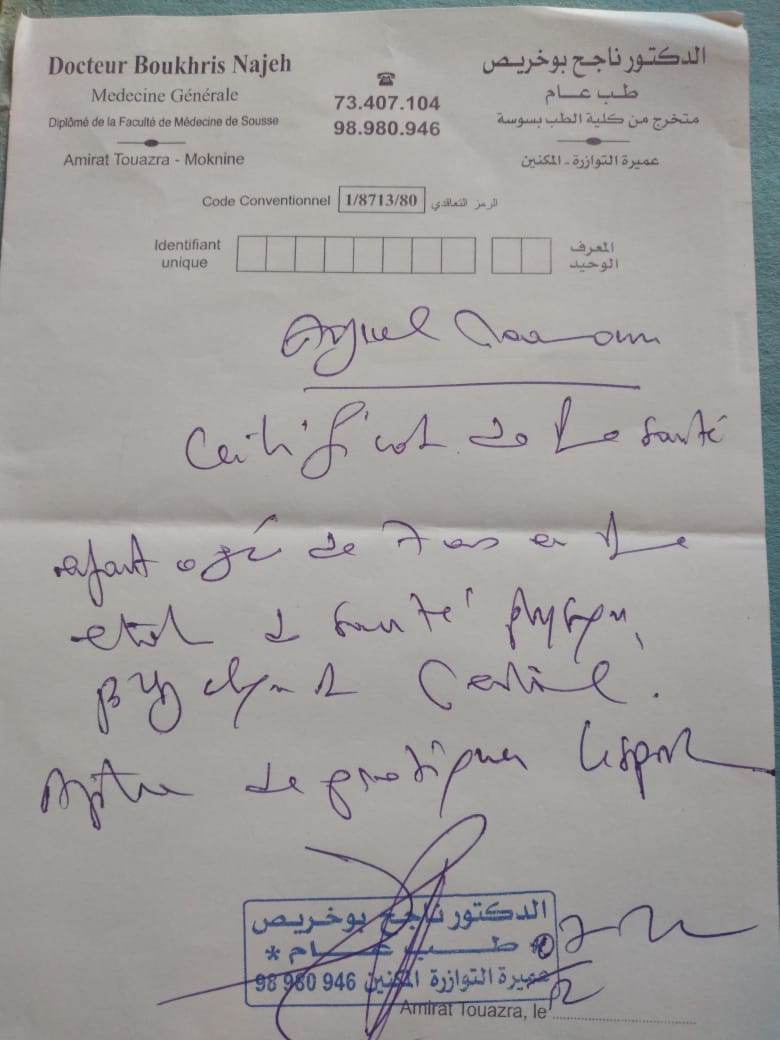 Docteur Boukhris Najeh
Medecine Générale
Diplômé de la Faculté de Médecine de Sousse
Amirat Touazra - Moknine
73.407.104
98.980.946
الدكتور ناجح بوخريص
طب عام
متخرج من كلية الطب بسوسة
عميرة التوازرة - المكنين
Code Conventionnel 1/8713/80 الرمز التعاقدي
Identifiant unique
المعرف الوحيد
Certificat de de santé
enfant agé de 7 ans en
etat de santé physique,
Apte de pratiquer le sport
الدكتور ناجح بوخريص
* طب عام *
عميرة التوازرة المكنين 946 980 98
Amirat Touazra, le